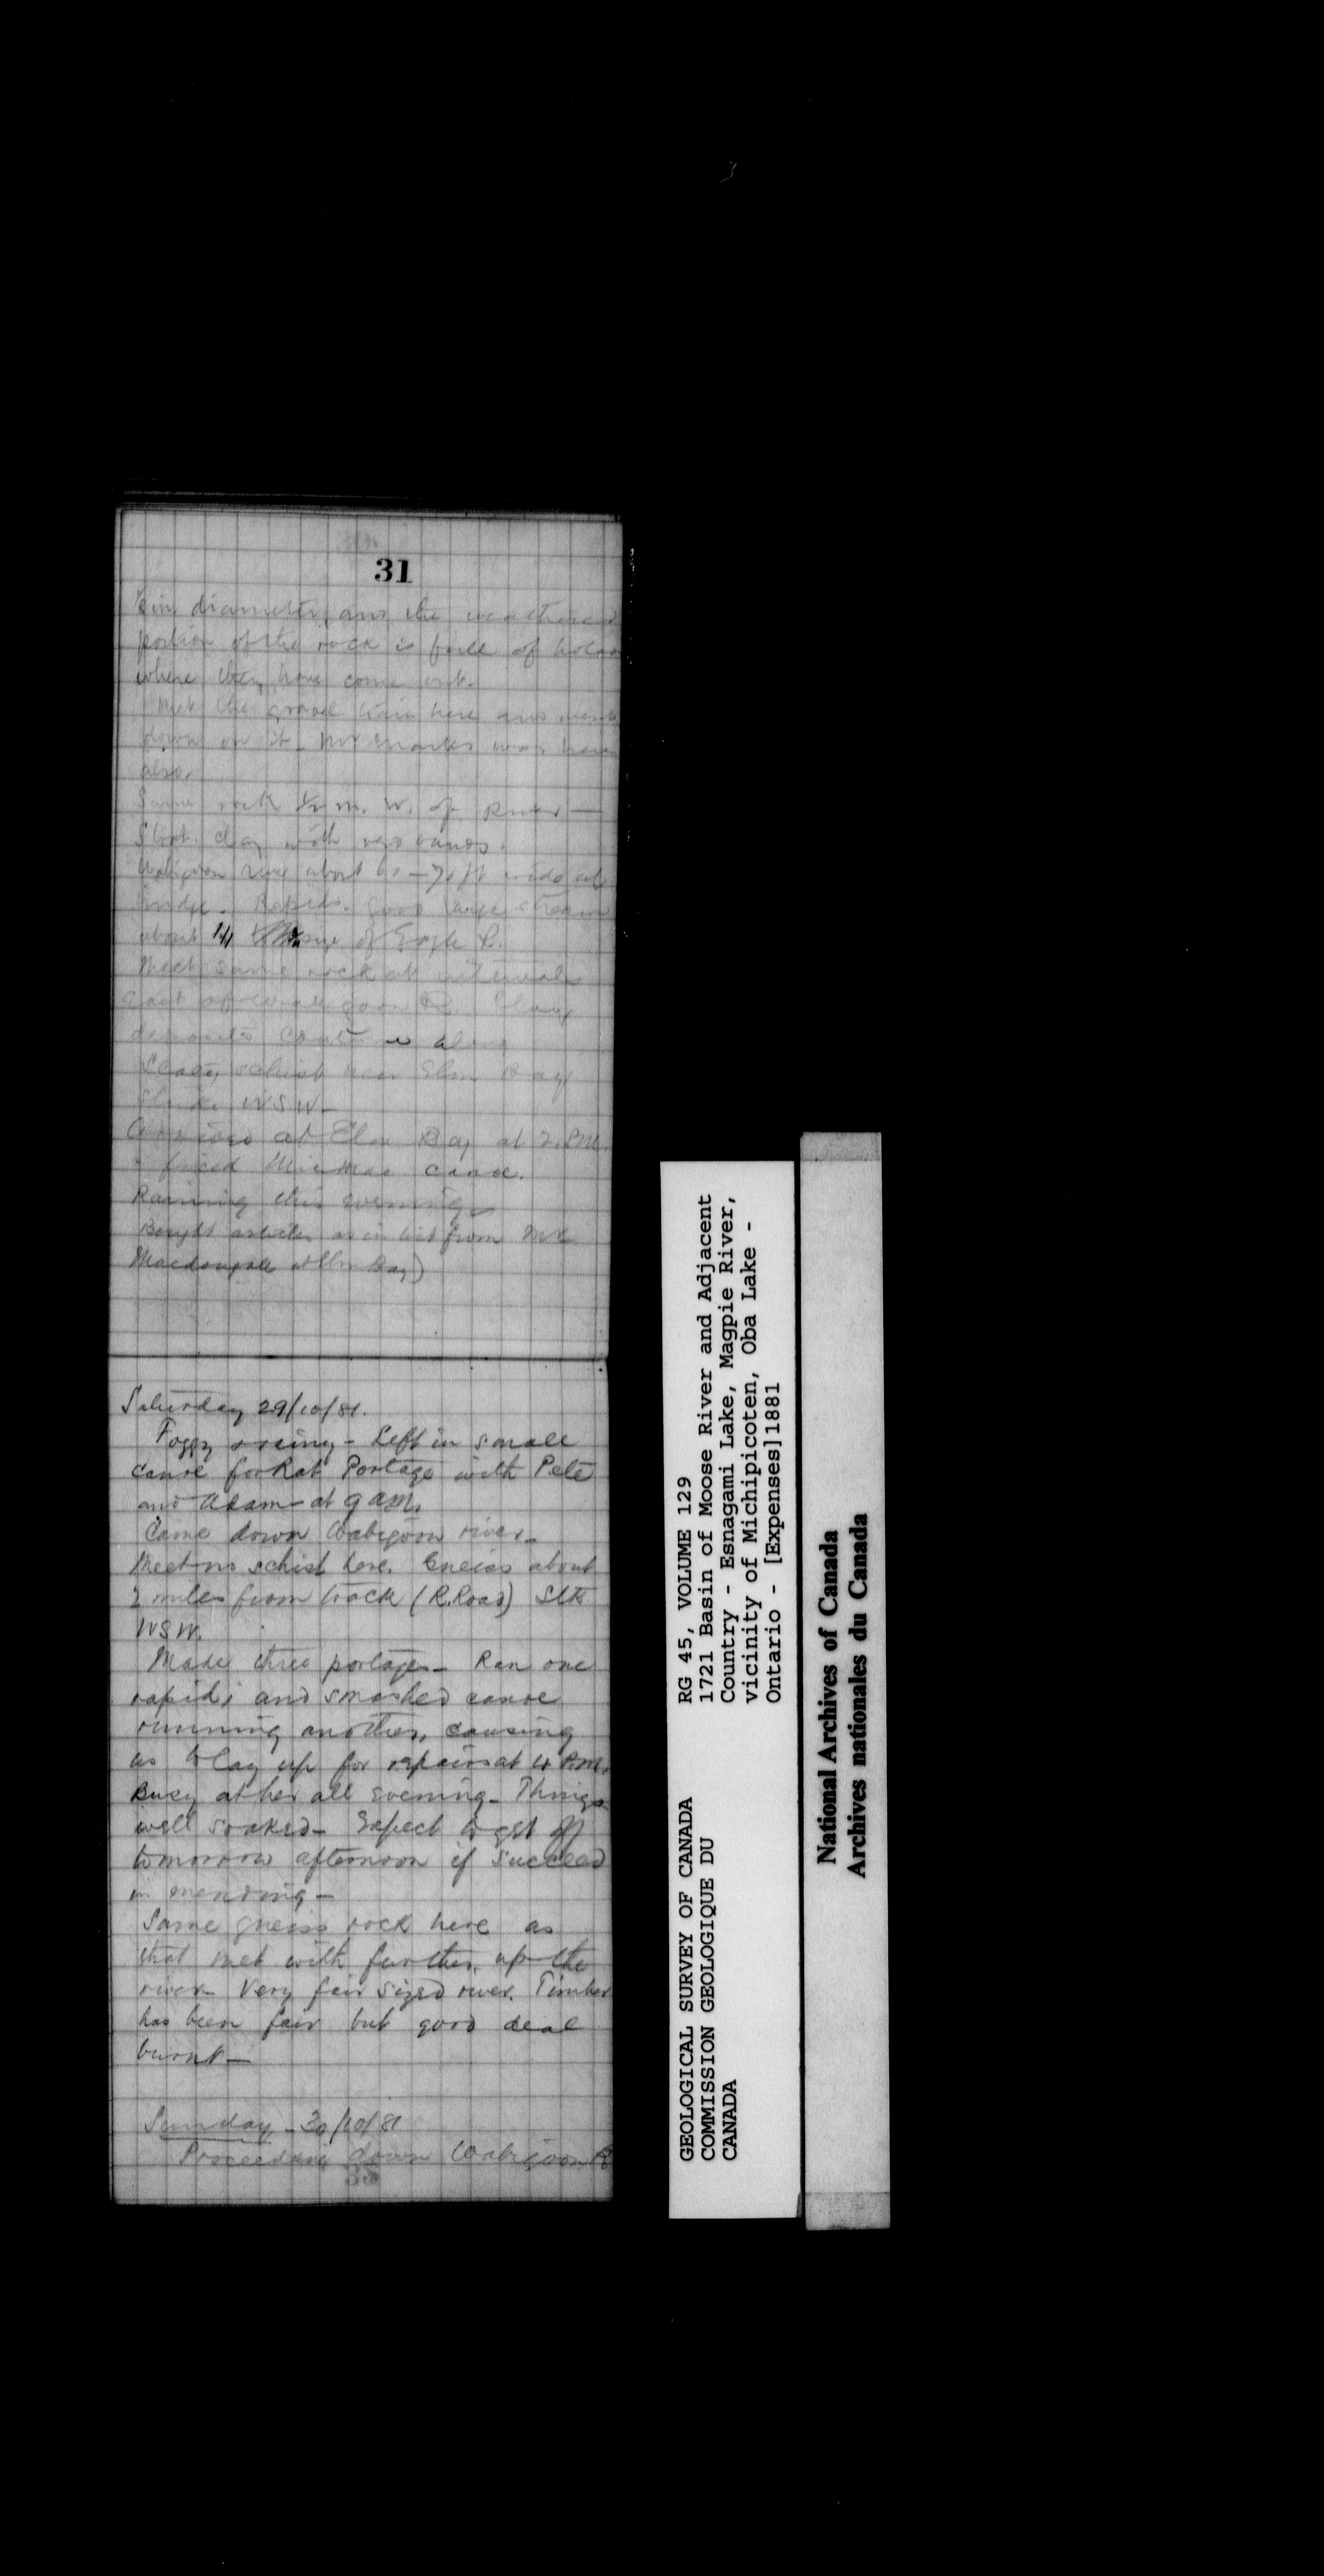 31
in diameter, and the weathered
portion of the rock is full of holes
where they have come out.
Met the gravel train here and went
down on it. Mr Marks was here
also.
Same rock ½ m. W. of River —
Strat. clay with
Wabigoon river about 60 — 70 ft wide at
bridge. Rapids. Good large stream
about size of Eagle R.
Meet same rock at intervals
East of Wabigoon R. Clay
deposits continue along
Slaty schist near Elm Bay
Strike WSW —
Arrived at Elm Bay at 2. P.M.
fixed Micmac canoe.
Raining this evening —
Bought articles as in list from Mr
Macdougall at Elm Bay)
Saturday 29/10/81.
Foggy - Left in small
canoe for Rat Portage with Pete
and Adam at 9 am.
Came down Wabigoon river —
Meet no schist here. Gneiss about
2 miles from track (R.Road) Stk
WSW.
Made three portages — Ran one
rapids and smashed canoe
running another, causing
us to lay up for repairs at 4 P.M.
Busy at her all evening — Things
well soaked — Expect to get off
tomorrow afternoon if succeed
in mending —
Same gneiss rock here as
that met with further up the
river — Very fair sized river. Timber
has been fair but good deal
burnt —
Sunday — 30/10/81
Proceeding down Wabigoon R
GEOLOGICAL SURVEY OF CANADA
COMMISSION GEOLOGIQUE DU
CANADA
RG 45, VOLUME 129
1721 Basin of Moose River and Adjacent
Country - Esnagami Lake, Magpie River,
vicinity of Michipicoten, Oba Lake -
Ontario - [Expenses]1881
National Archives of Canada
Archives nationales du Canada